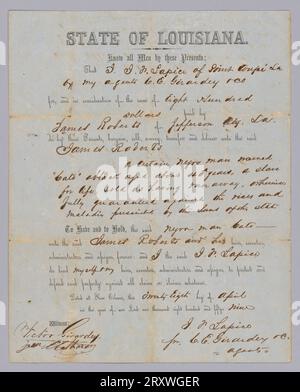 STATE OF LOUISIANA.
Know all Men by these Presents:
That I J. F. Lapice of Point Coupée La
by my agents C. E. Girardey & Co
for, and in consideration of the sum of Eight Hundred
dollars paid by
James Roberts of Jefferson City, La.
do by these Presents, bargain, sell, convey, transfer and deliver unto the said
James Roberts
a certain negro man named
"Cato" wicked aged about 50 years, a slave
for life, sold as having runaway, otherwise
fully guaranteed against the vices and
maladies prescribed by the laws of the state
To Have and to Hold, the said negro man Cato
unto the said James Roberts and his heirs, executors,
administrators and assigns forever: And I the said J. F. Lapice
do bind myself my heirs, executors, administrators and assigns, to protect and
defend said property against all claims or claims whatever.
Dated at New Orleans, this Twenty Eighth day of April
in the year of our Lord one thousand eight hundred and fifty
Nine
Witness:
Victor Girardey
J. F. Lapice
pr. C. E. Girardey & Co.
agents
alamy
Image ID: 2RXWGER
www.alamy.com